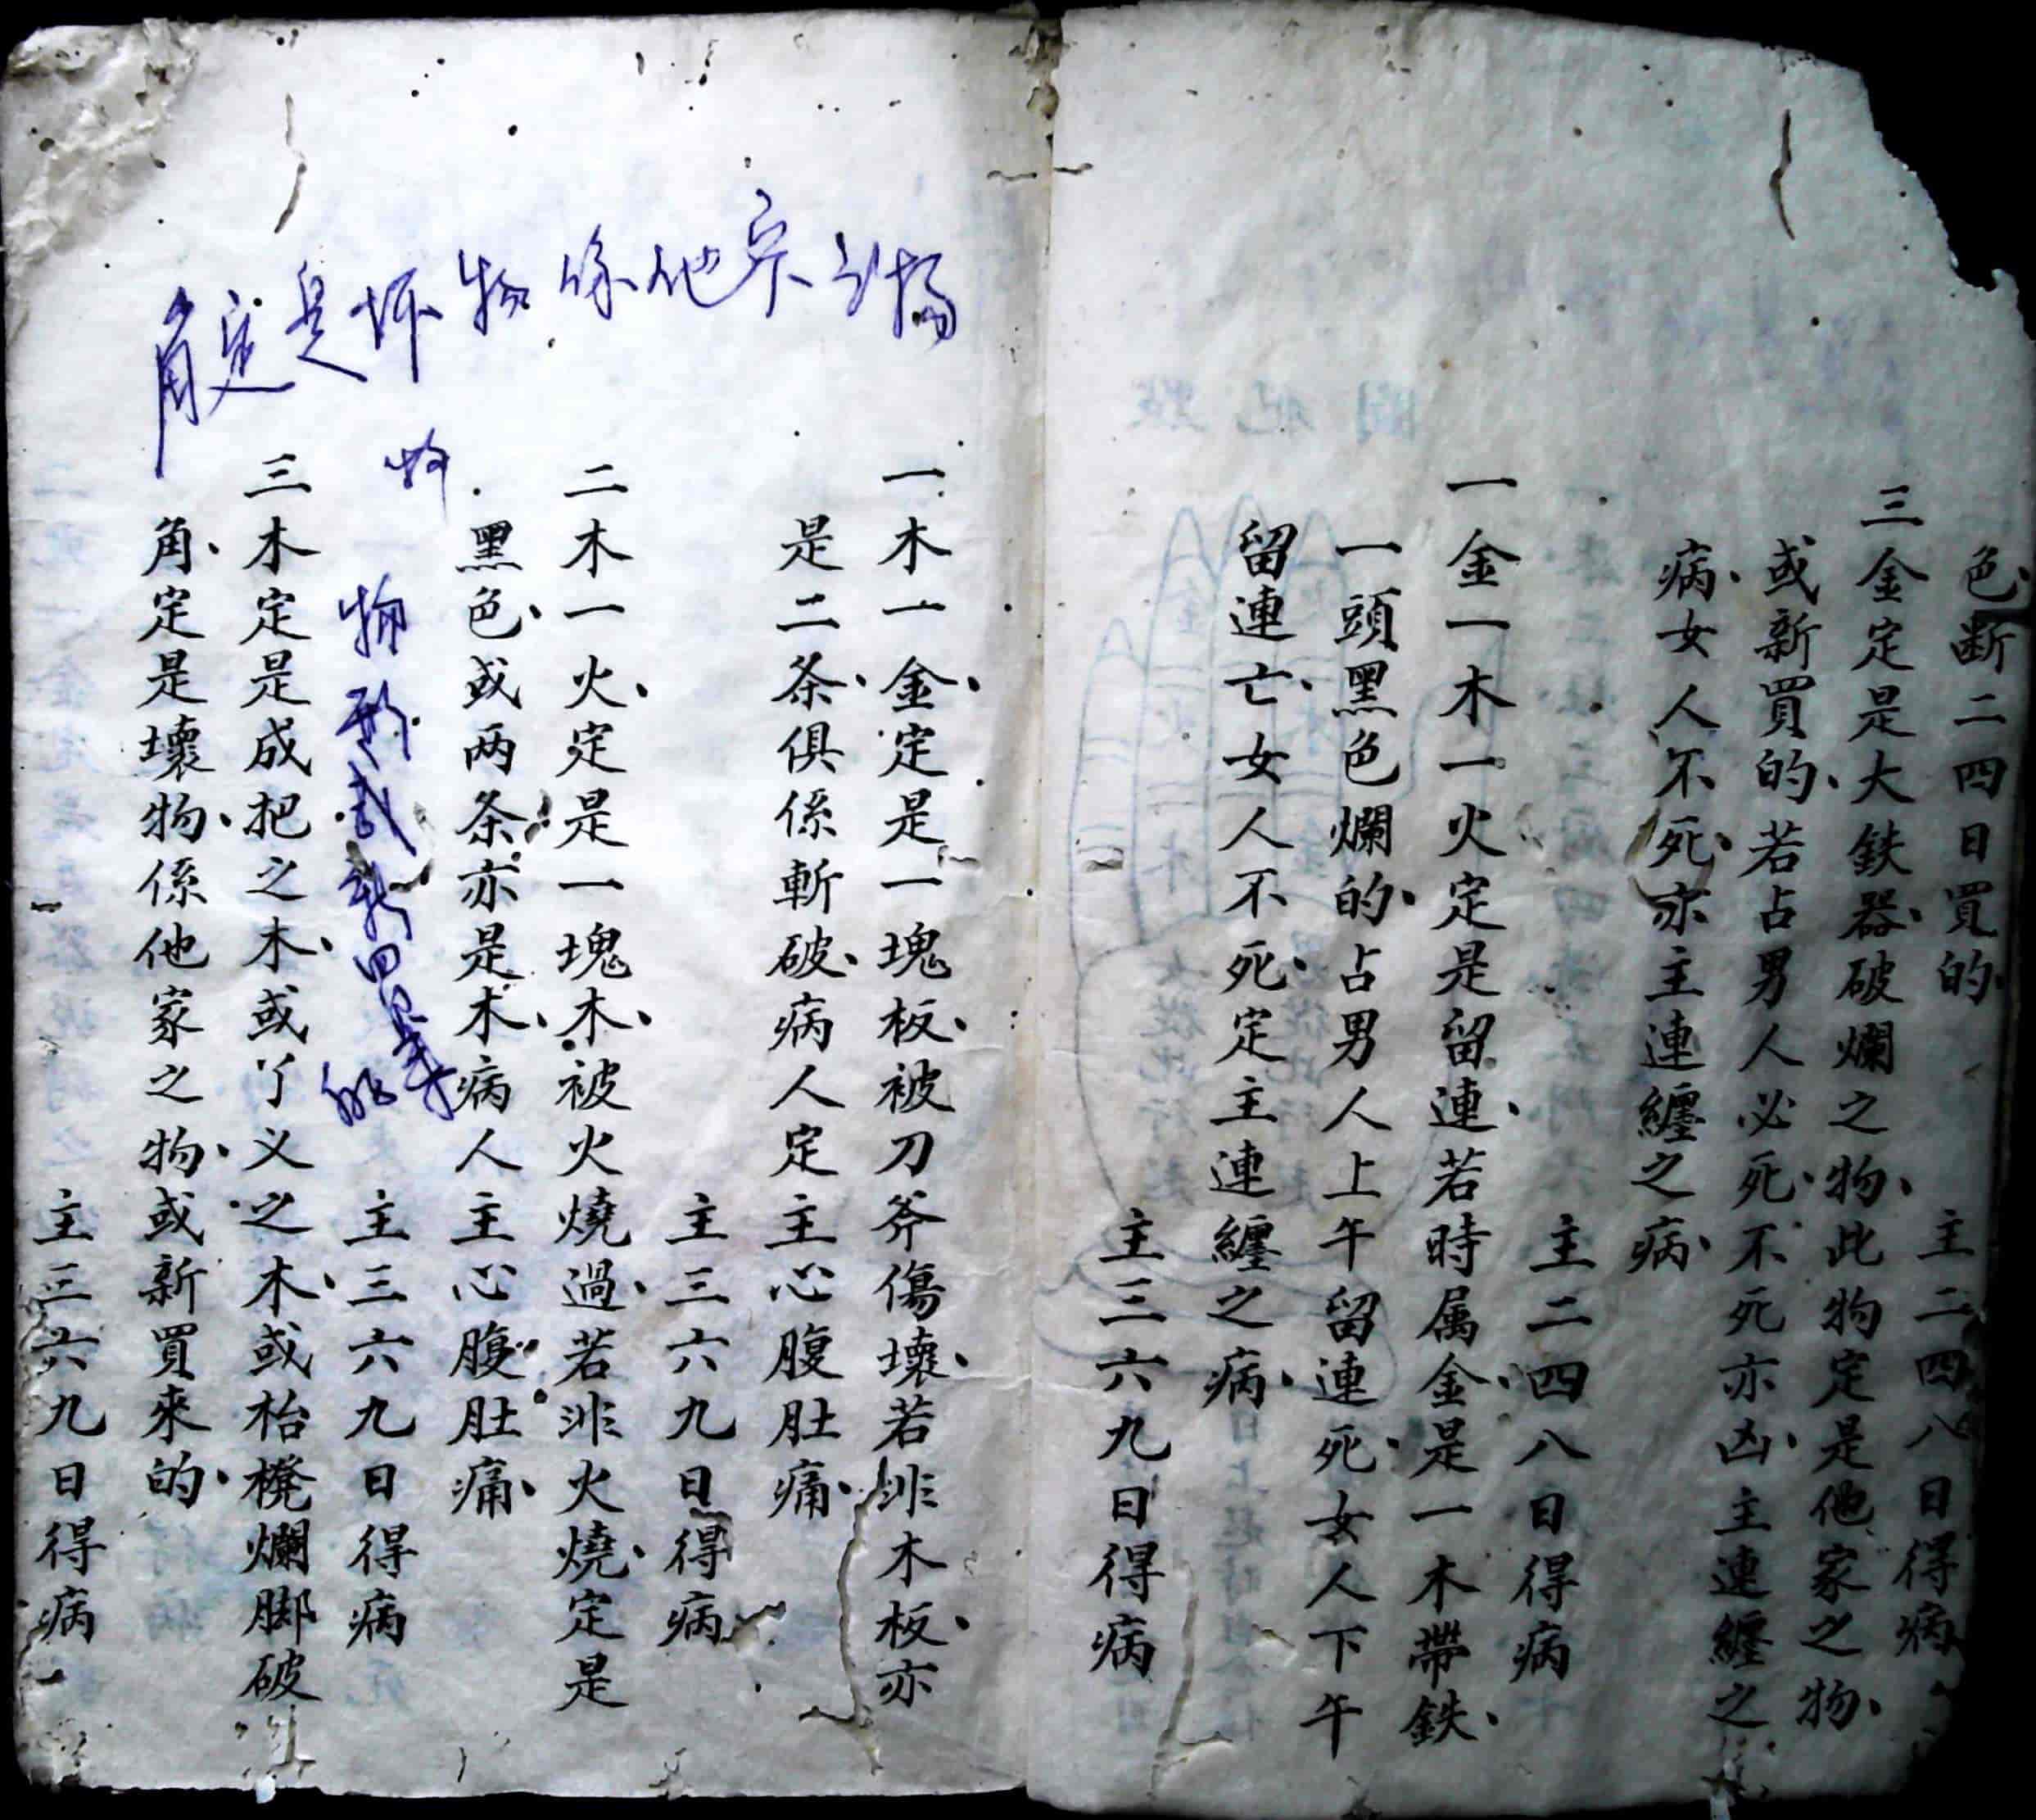 色断二四日買的　主二四八日得病
三金定是大鉄器破爛之物此物定是他家之物
或新買的若占男人必死不死亦凶主連纏之
病女人不死亦主連纏之病
主二四八日得病
一金一木一火定是留連若時属金是一木帶鉄
一頭黑色爛的占男人上午留連死女人下午
留連亡女人不死定主連纏之病
主三六九日得病
一木一金定是一塊板被刀斧傷壞若非木板亦
是二条俱係斬破病人定主心腹肚痛
主三六九日得病
二木一火定是一塊木被火燒過若非火燒定是
黑色或两条亦是木病人主心腹肚痛
主三六九日得病
三木定是成把之木或丫义之木或枱櫈爛脚破
角定是壞物係他家之物或新買來的
主三六九日得病
角定是坏物係他家
物